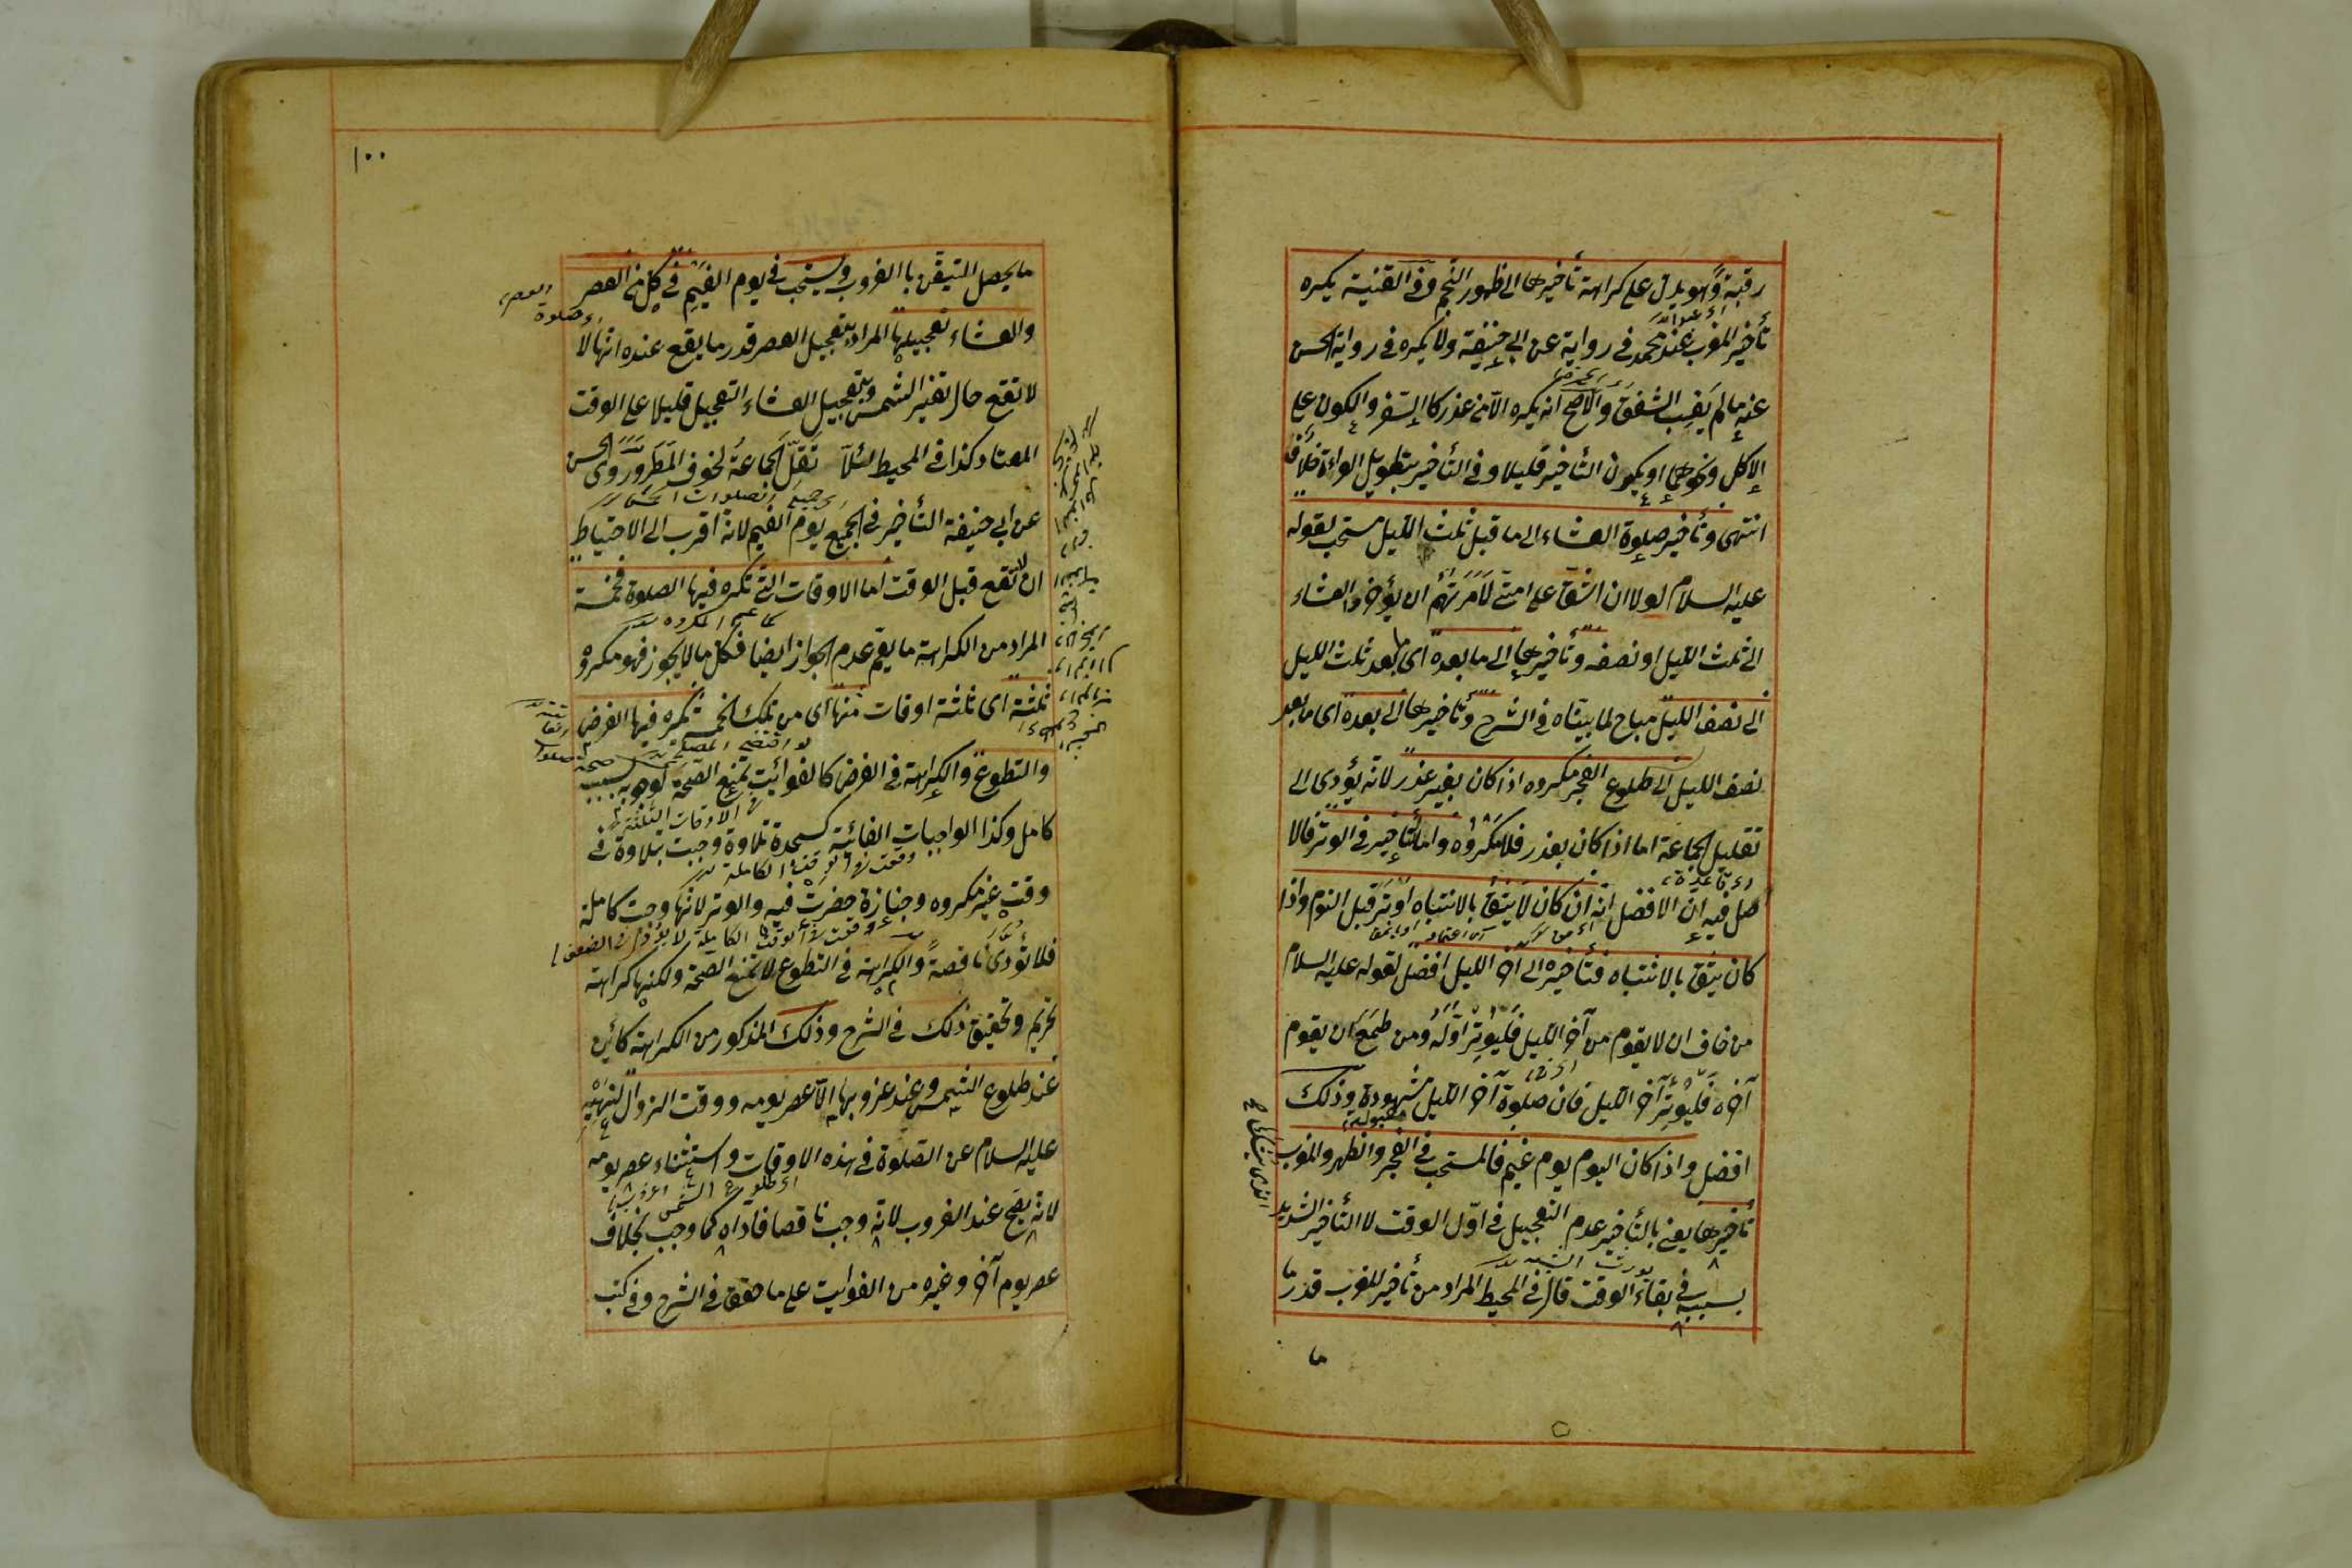 رقبة وهو يدل على كراهة تأخيرها الى ظهور النجم وفى القنية يكره
تأخير المغرب عند محمد فى رواية عن ابى حنيفة ولا يكره فى رواية الحسن
عنه ما لم يغب الشفق والاصح انه يكره الا من عذر كالسفر والكون على
الاكل ونحوهما او يكون التأخير قليلا وفى التأخير بتطويل القراءة خلاف
انتهى وتأخير صلوة العشاء الى ما قبل ثلث الليل مستحب لقوله
عليه السلام لولا ان اشق على امتى لامرتهم ان يؤخروا العشاء
الى ثلث الليل او نصفه وتأخيرها الى ما بعده اى ما بعد ثلث الليل
الى نصف الليل مباح لما بيناه فى الشرح وتأخيرها الى بعده اى ما بعد
نصف الليل الى طلوع الفجر مكروه اذا كان بغير عذر لانه يؤدى الى
تقليل الجماعة اما اذا كان بعذر فلا يكره واما التأخير فى الوتر فالا
صل فيه ان الافضل انه ان كان لا يثق بالانتباه اوتر قبل النوم واذا
كان يثق بالانتباه فتأخيره الى آخر الليل افضل لقوله عليه السلام
من خاف ان لا يقوم من آخر الليل فليوتر اوله ومن طمع ان يقوم
آخره فليوتر آخر الليل فان صلوة آخر الليل مشهودة وذلك
مقبولة
افضل واذا كان اليوم يوم غيم فالمستحب فى الفجر والظهر والمغرب
تأخيرها يعنى بالتأخير عدم التعجيل فى اول الوقت لا التأخير الشديد
بسببه فى بقاء الوقت قال فى المحيط المراد من تأخير المغرب قدر ما
ما
١٠٠
ما يحصل التيقن بالغروب ويستحب فى يوم الغيم فى كل من العصر
والعشاء تعجيلها المراد بتعجيل العصر قدر ما يقع عنده انها لا
لا تقع حال تغير الشمس وبتعجيل العشاء التعجيل قليلا على الوقت
المعتاد كذا فى المحيط لئلا تقل الجماعة لخوف المطر وروى الحسن
جميع الصلوات الخمس
عن ابى حنيفة التأخير فى الجميع يوم الغيم لانه اقرب الى الاحتياط
ان لا تقع قبل الوقت اما الاوقات التى تكره فيها الصلوة فخمسة
المراد من الكراهة ما يعم عدم الجواز ايضا فكل ما لا يجوز فهو مكروه
ثلثة اى ثلثة اوقات منها اى من تلك الخمسة يكره فيها الفرض
والتطوع والكراهة فى الفرض كالفوائت تمنع الصحة لوجوبه بسبب
الاوقات الثلثة
كامل وكذا الواجبات الفائتة كسجدة تلاوة وجبت بتلاوة فى
وقت غير مكروه وجنازة حضرت فيه والوتر لانها وجبت كاملة
فلا تؤدى ناقصة والكراهة فى التطوع لا تمنع الصحة ولكنها كراهة
تحريم وتحقيق ذلك فى الشرح وذلك المذكور من الكراهة كائن
عند طلوع الشمس وعند غروبها الا عصر يومه ووقت الزوال لنهيه
عليه السلام عن الصلوة فى هذه الاوقات واستثناء عصر يومه
لانه يصح عند الغروب لانه وجب ناقصا فاداه كما وجب بخلاف
عصر يوم آخر وغيره من الفوايت على ما حقق فى الشرح وفى كتب